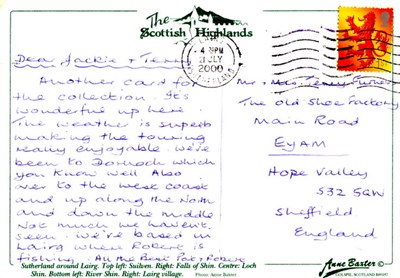 The
Scottish Highlands
4 PM
JLY
2000
Dear Jackie + Terry
Another card for
the collection. It's
wonderful up here
The weather is superb
making the touring
really enjoyable we've
been to Dornoch which
you know well Also
over to the west coast
and up along the North
and down the middle
Not much we haven't
seen. We're based in
Lairg where Robert is
fishing. All the Best Pat + Robert
Mr + Mrs Terry
The Old Shoe Factory
Main Road
EYAM
Hope Valley
S32 5QW
Sheffield
England
Sutherland around Lairg. Top left: Suilven. Right: Falls of Shin. Centre: Loch
Shin. Bottom left: River Shin. Right: Lairg village.
Photos: Anne Baxter
Anne Baxter